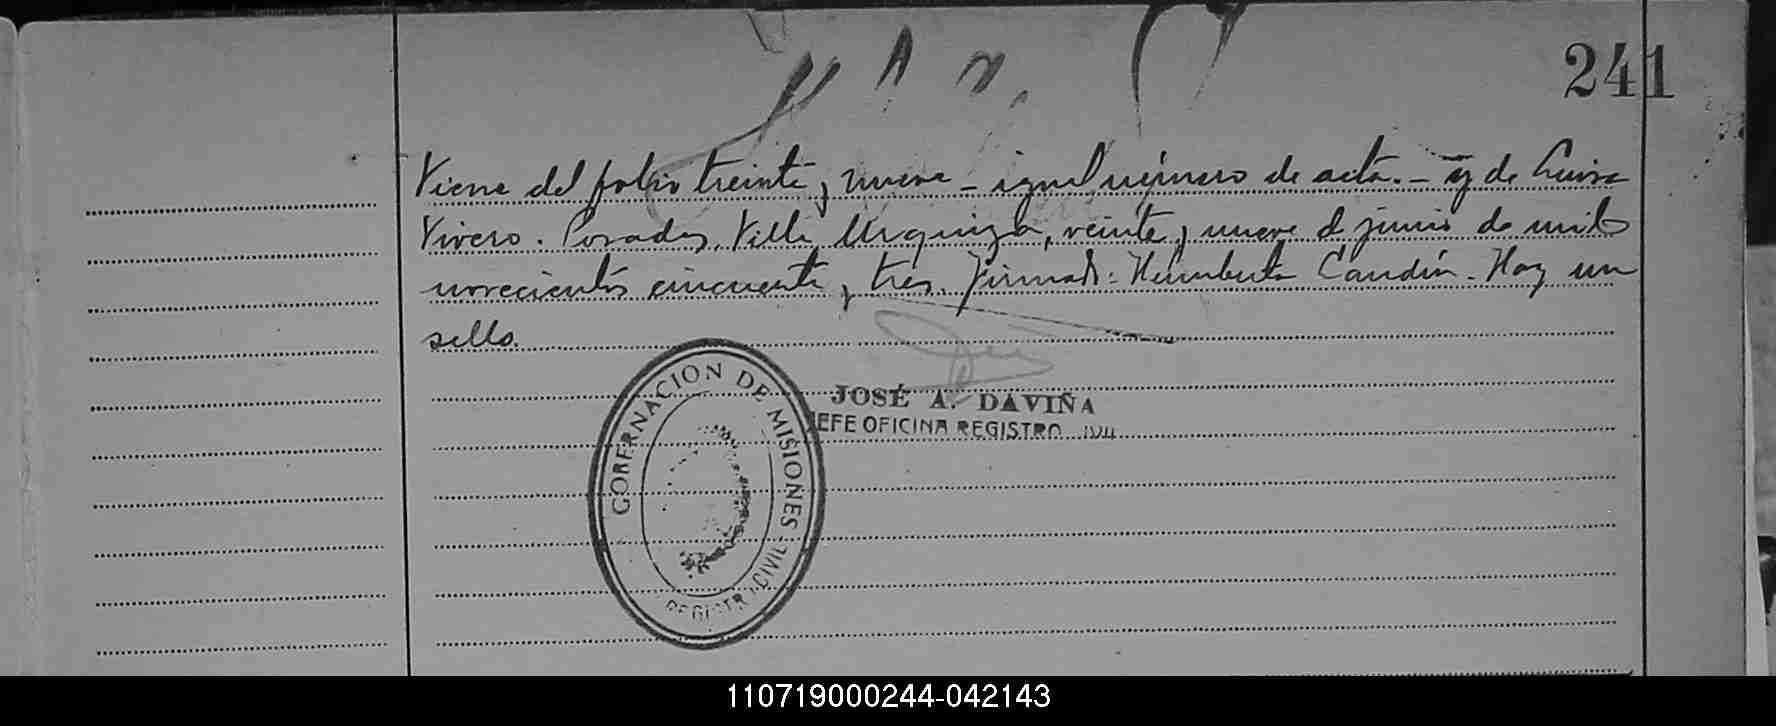 241
Viene del folio treinta y nueve - igual número de acta. - y de Luisa
Vivero. Posadas, Villa Urquiza, veinte y nueve de junio de mil
novecientos cincuenta y tres. Firmado: Humberto Candia. Hay un
sello.
JOSÉ A. DAVIÑA
JEFE OFICINA REGISTRO CIVIL
GOBERNACION DE MISIONES
REGISTRO CIVIL
110719000244-042143